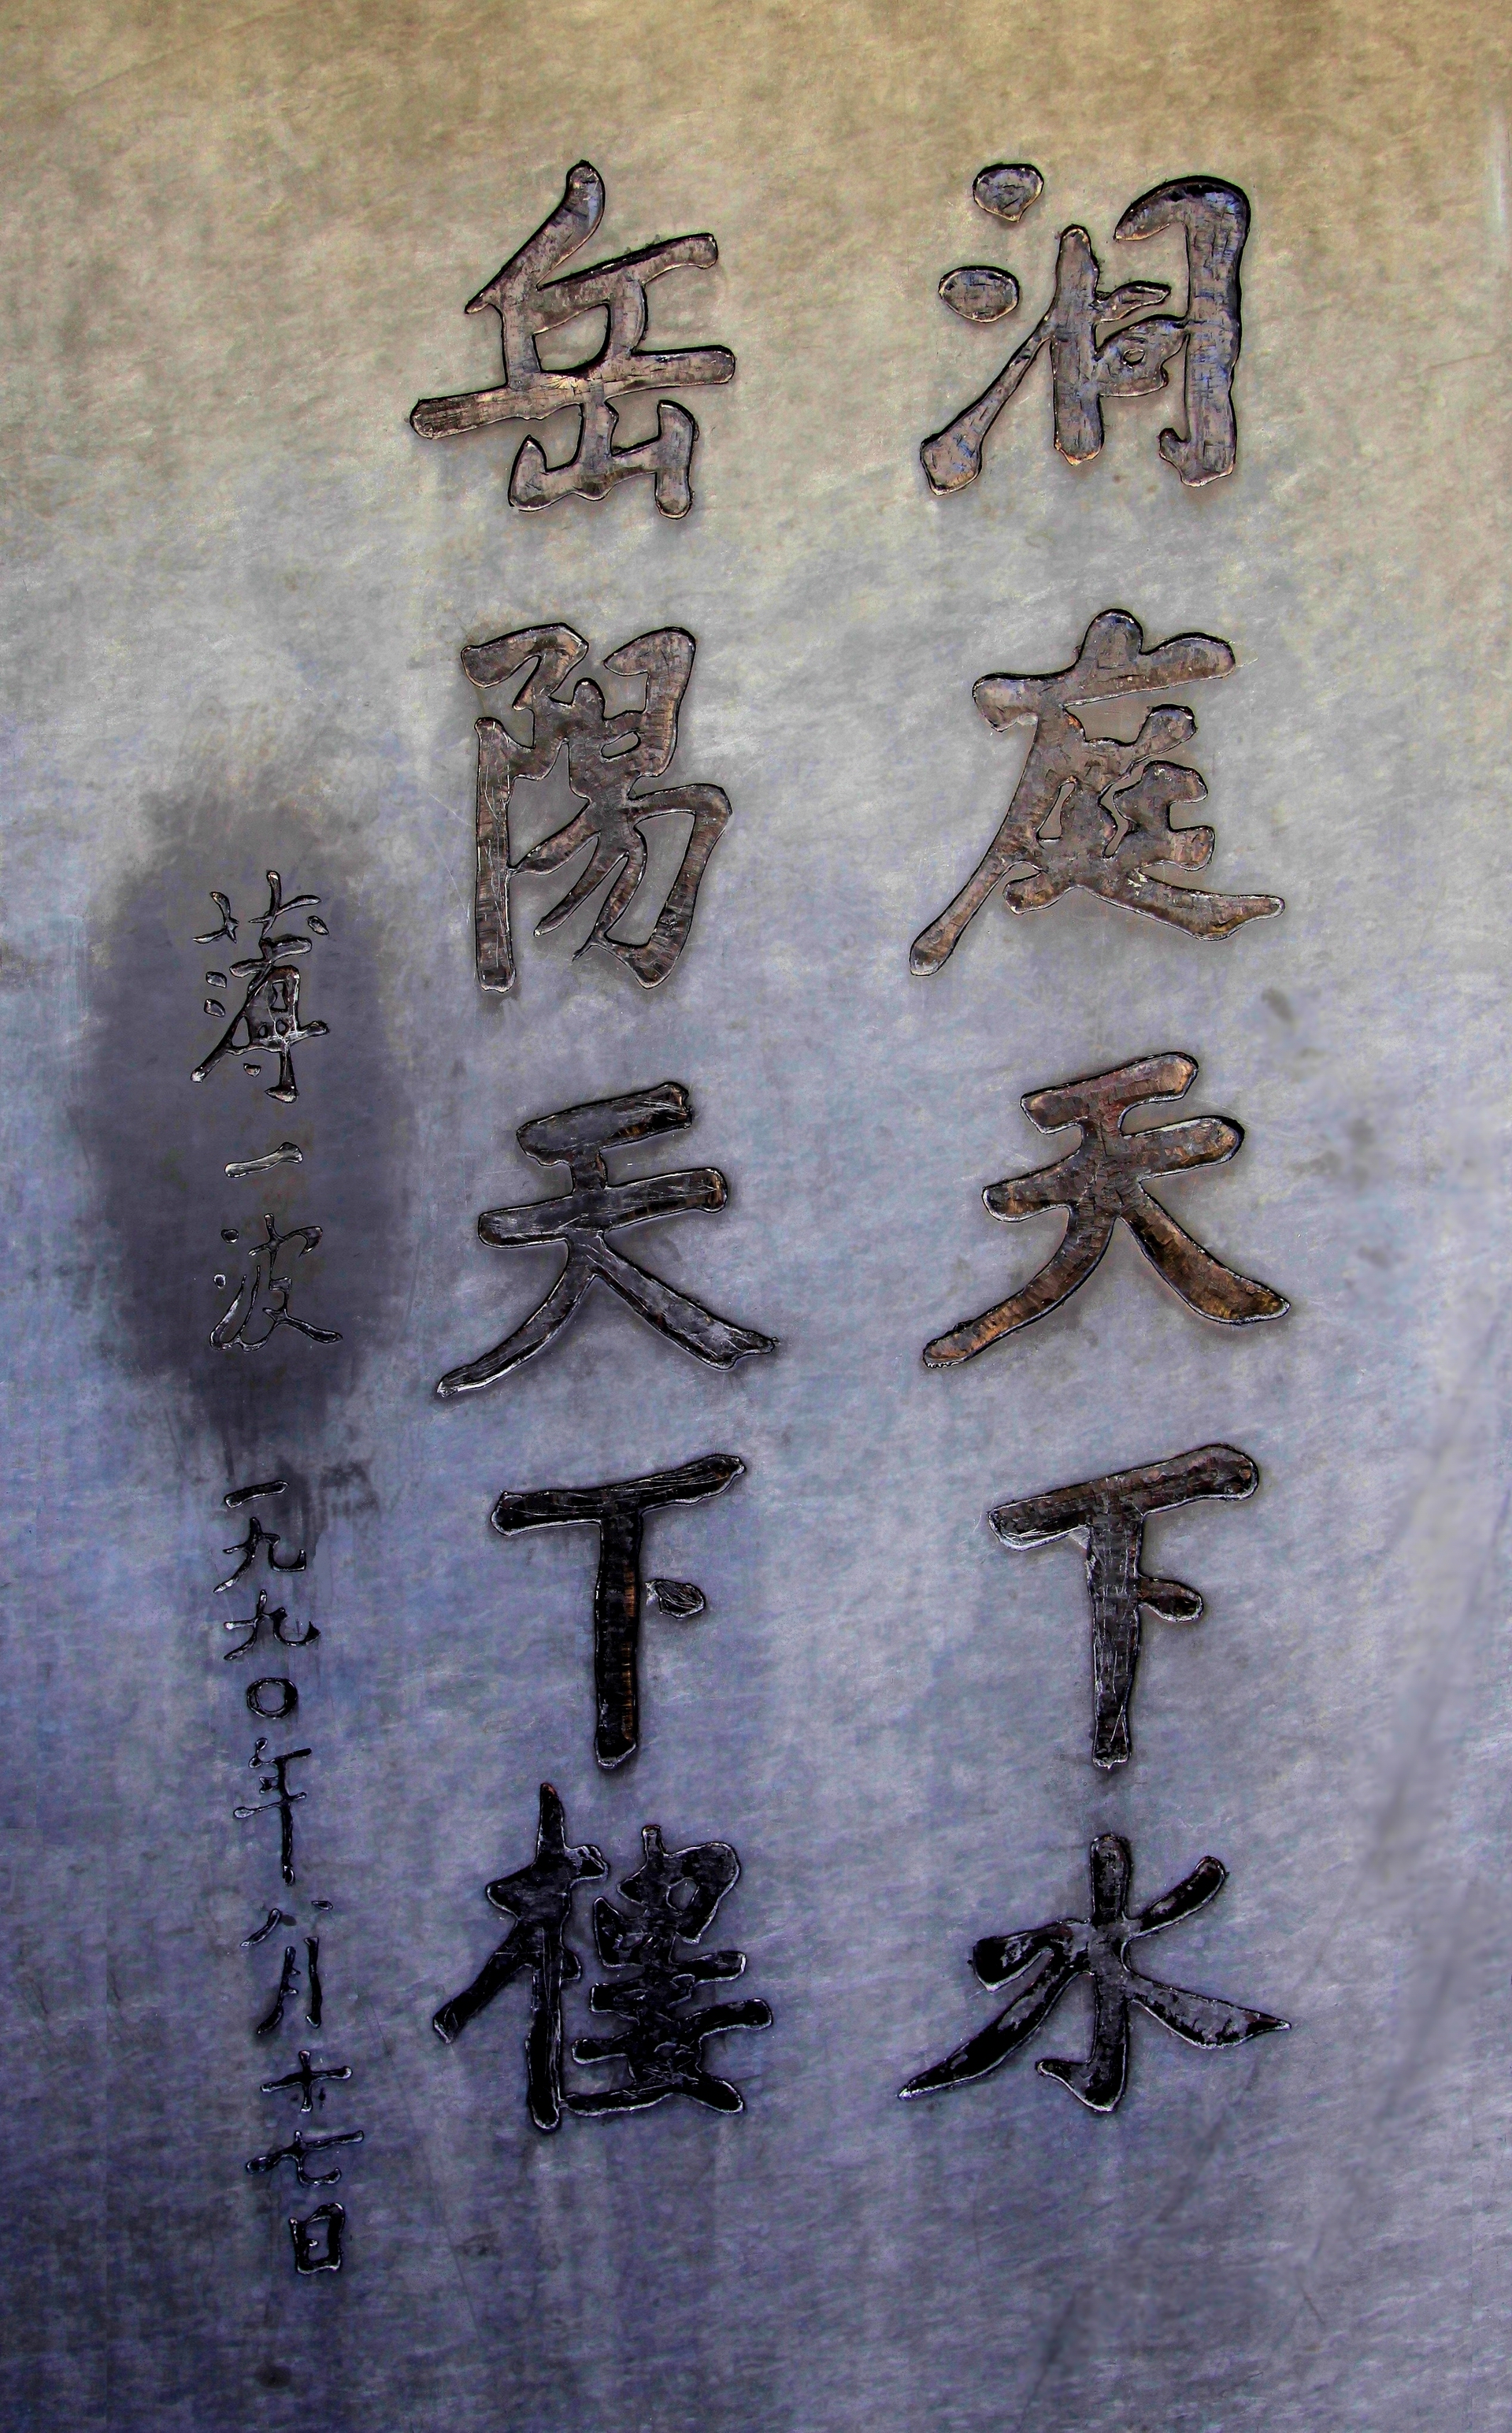 洞庭天下水
岳陽天下樓
薄一波 一九九〇年八月十七日